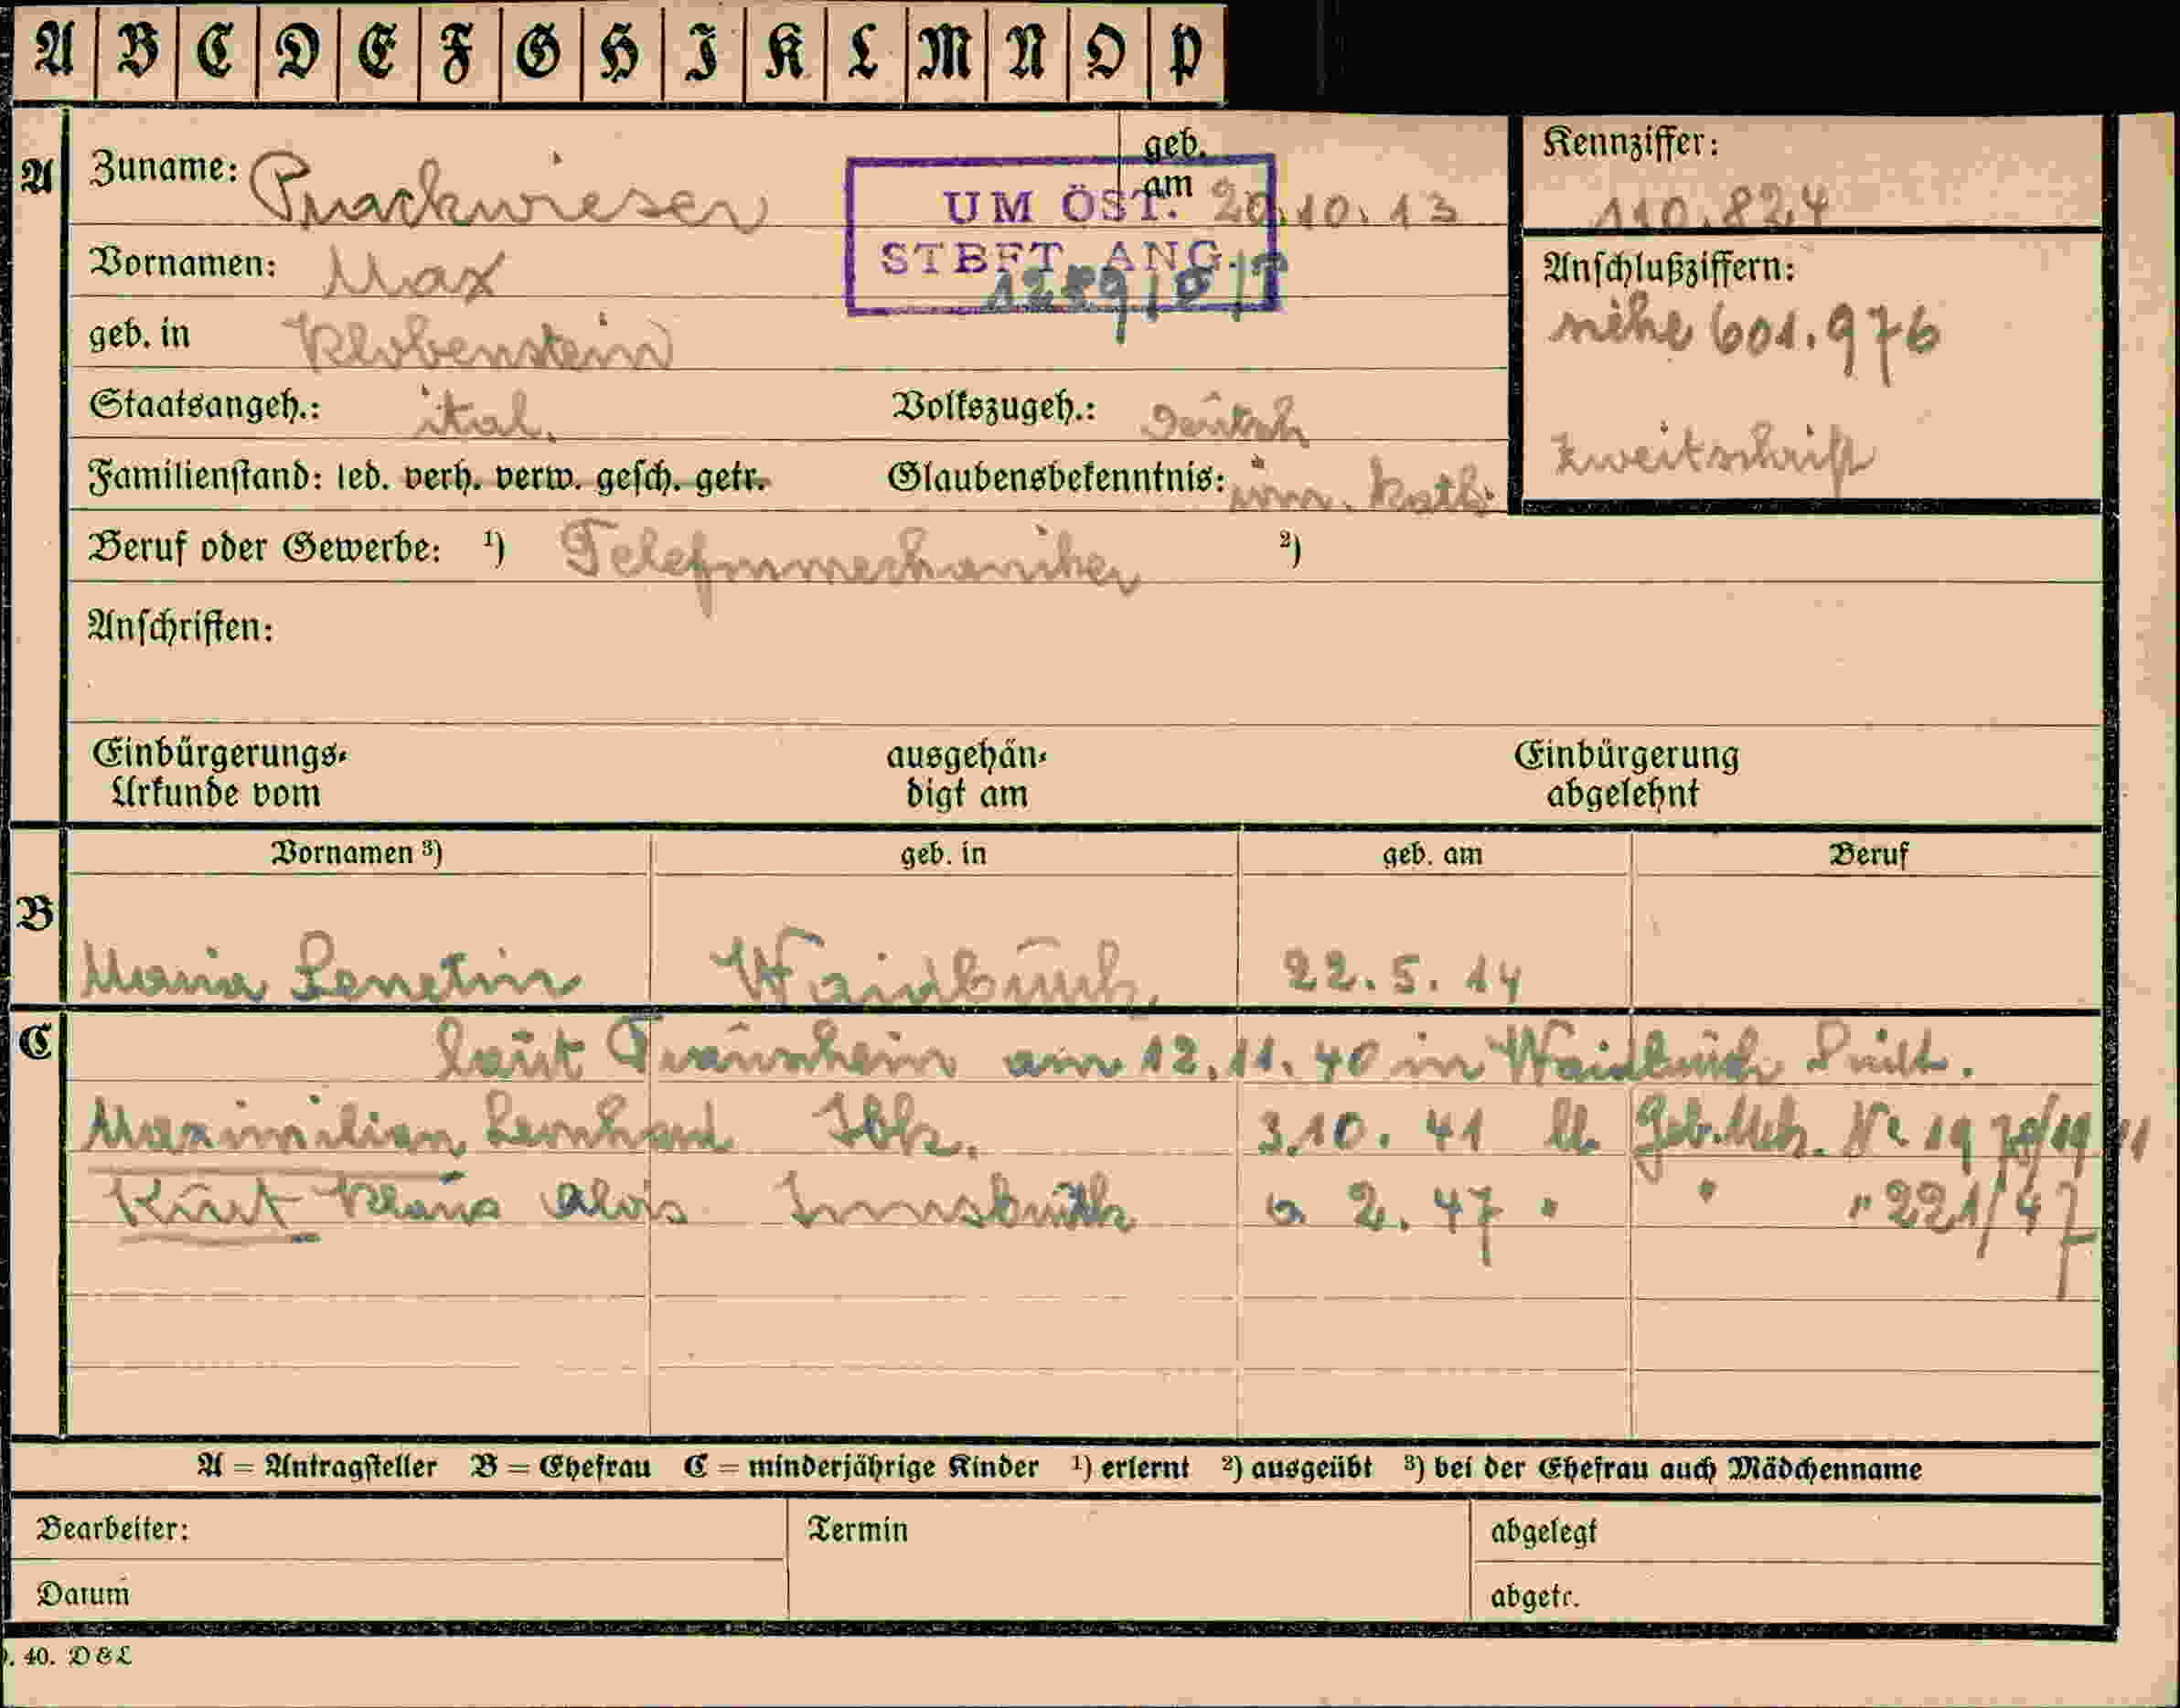 A B C D E F G H I K L M N O P
A Zuname: Prackwieser geb. am 20.10.13 Kennziffer: 110.824
UM ÖST.
STBFT. ANG.
Vornamen: Max Anschlußziffern:
geb. in Klobenstein siehe 601.976
Staatsangeh.: ital. Volkszugeh.: Deutsch
Zweitschrift
Familienstand: led. verh. verw. gesch. getr. Glaubensbekenntnis: röm. kath.
Beruf oder Gewerbe: ¹) Telefonmechaniker ²)
Anschriften:
Einbürgerungs- ausgehän- Einbürgerung
Urkunde vom digt am abgelehnt
Vornamen ³) geb. in geb. am Beruf
B
Maria Waidbruck. 22.5.14
C
laut Trauschein am 12.11.40 in Waidbruck
Maximilian Lernhard Ibk. 3.10.41 lt. Geb. Urk. Nr
Kurt Klaus Alois Innsbruck 2.47 " " " 221/47
A = Antragsteller B = Ehefrau C = minderjährige Kinder ¹) erlernt ²) ausgeübt ³) bei der Ehefrau auch Mädchenname
Bearbeiter: Termin abgelegt
Datum abgetr.
40. D & L